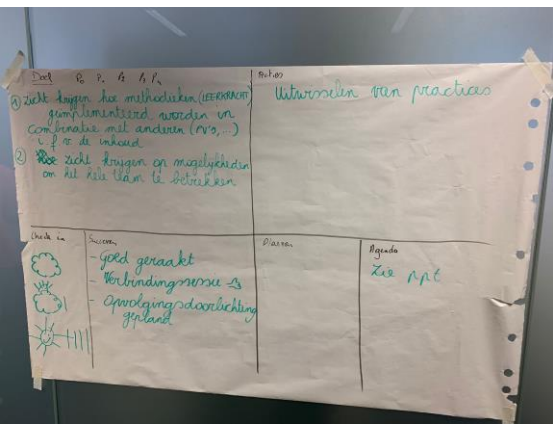 Doel
① Zicht krijgen hoe methodieken (LEERKRACHT)
geïmplementeerd worden in
combinatie met anderen (
de inhoud
② zicht krijgen op mogelijkheden
om het hele team te betrekken
Acties
Uitwisselen van practices
Check in
Successen
- Goed geraakt
- Verbindingssessie
- Opvolgingsdoorlichting
gepland
Plannen
Agenda
Zie ppt